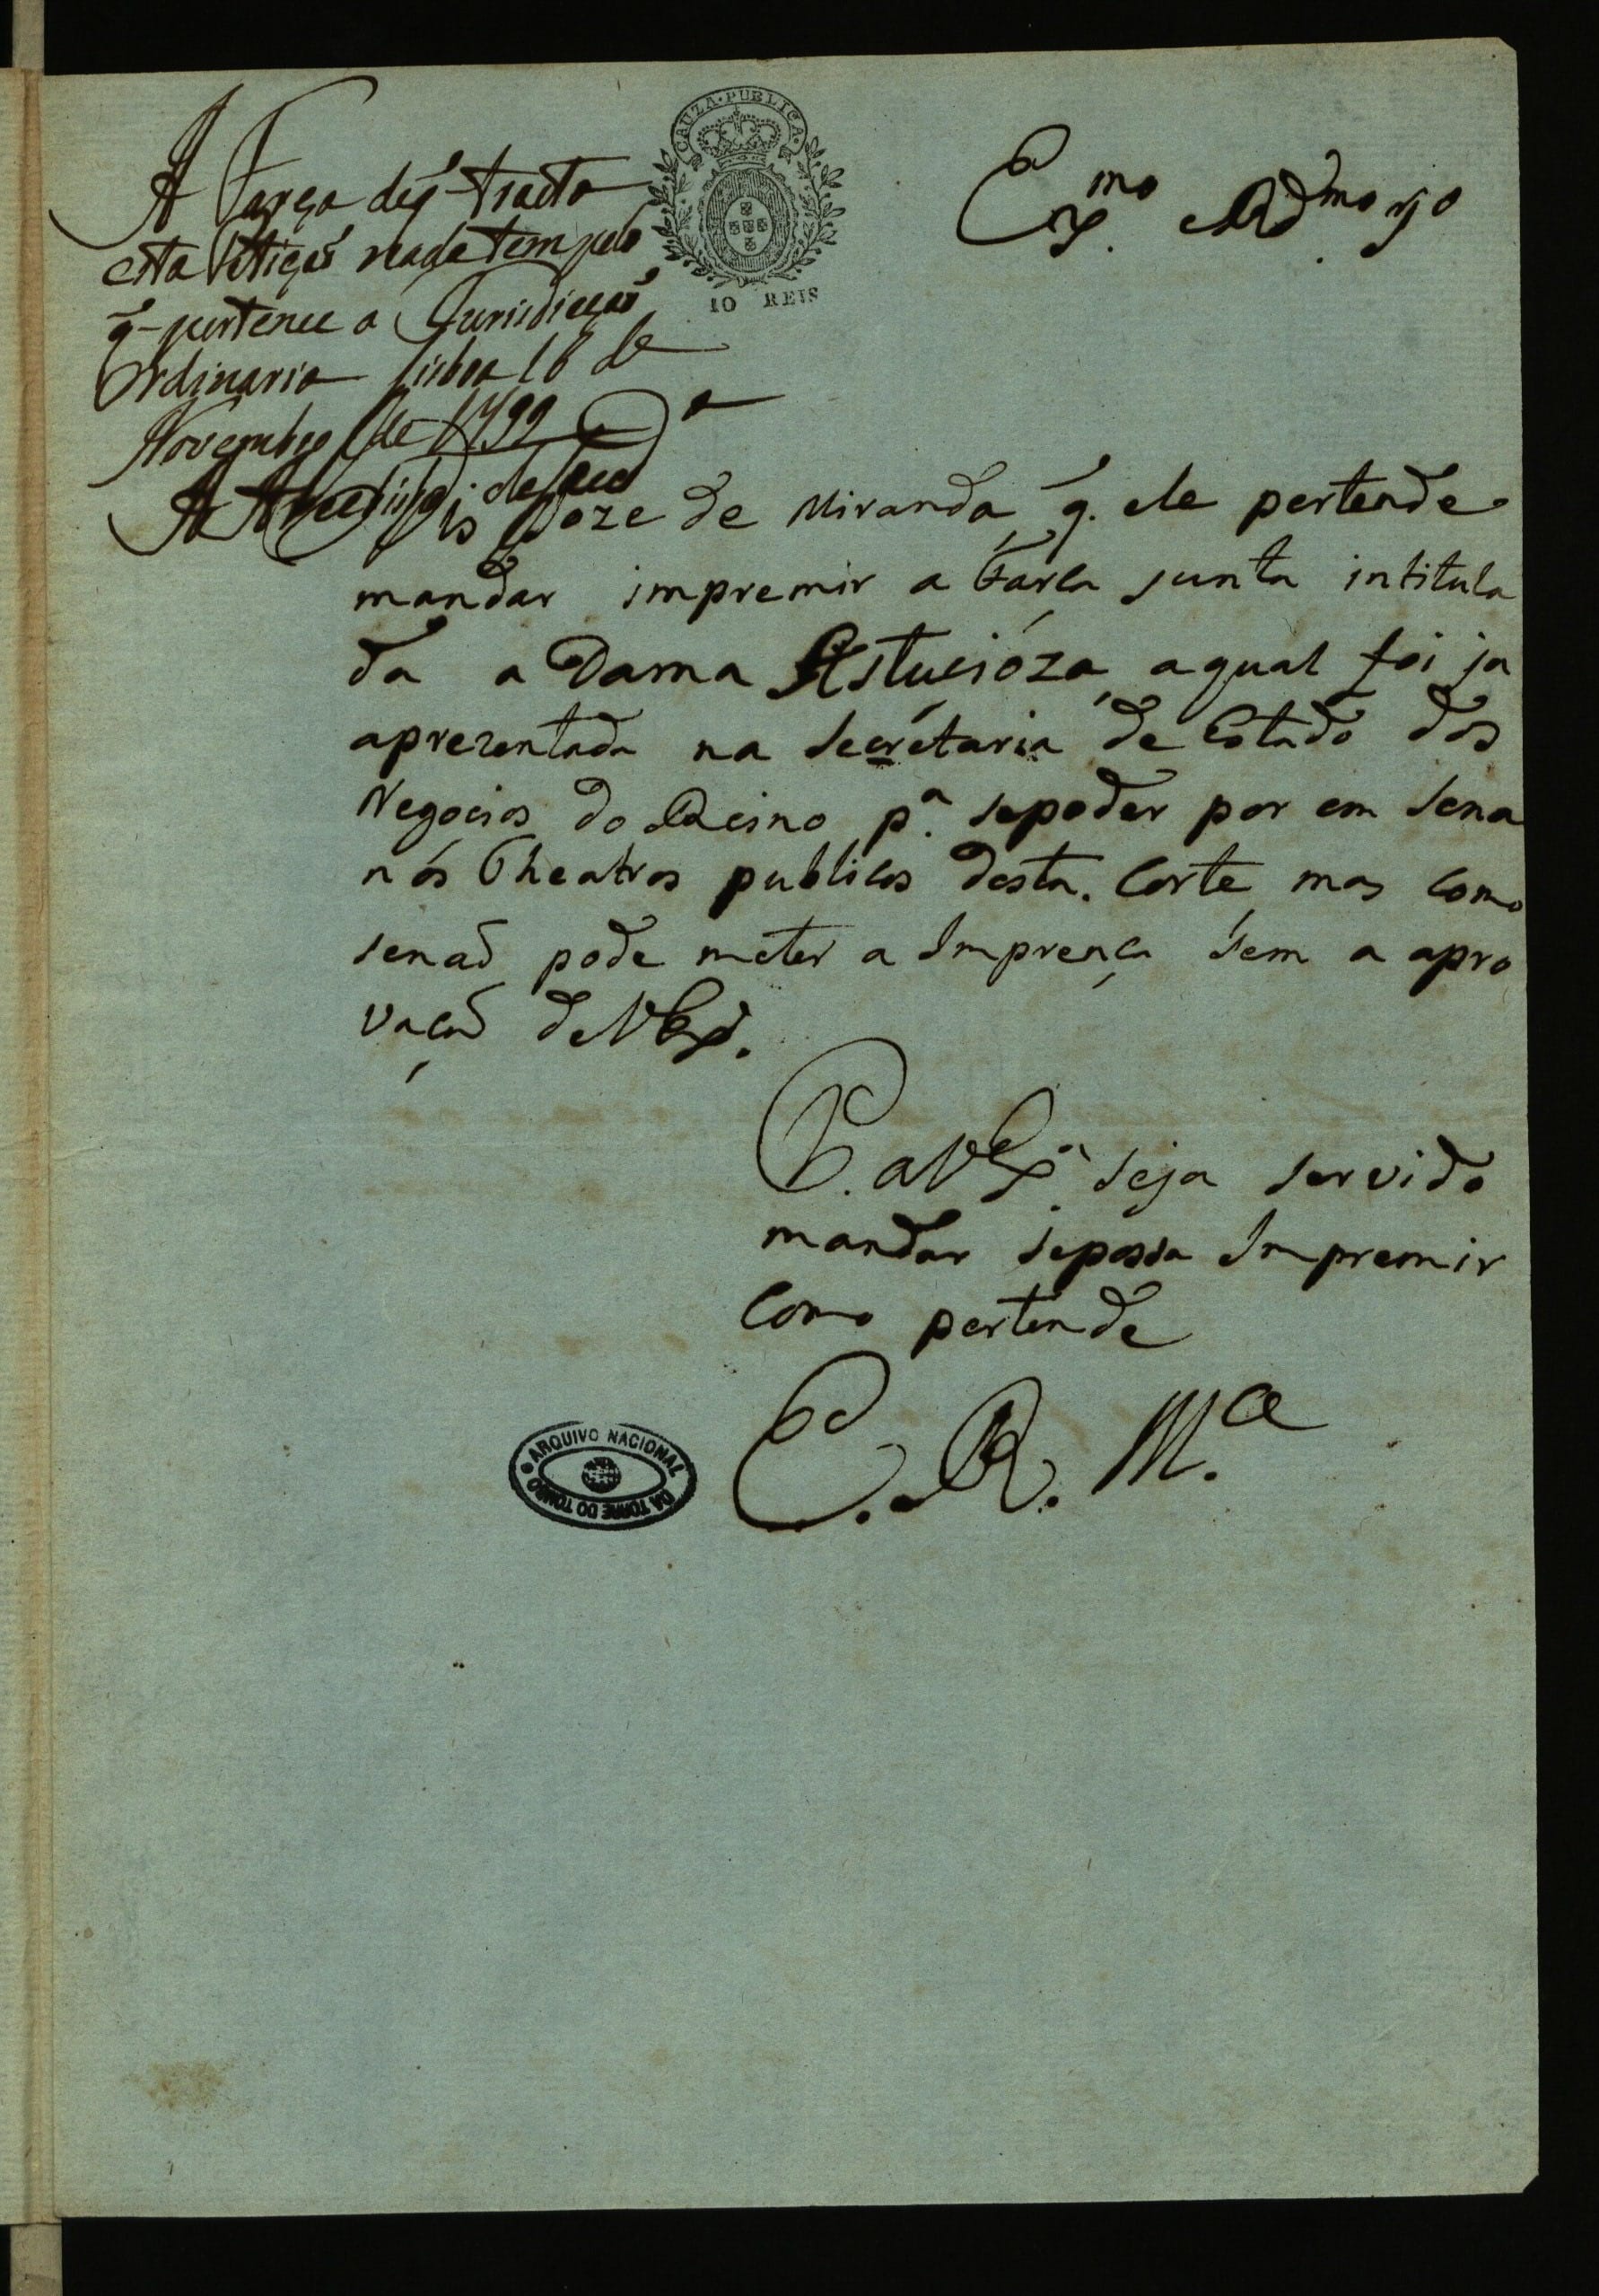 CAUZA·PUBLICA·
10 REIS
A Farça de q̃ tracta
esta Petiçaõ nada tem pelo
q̃ pertence a Jurisdicçaõ
Ordinaria Lisboa 16 de
Novembro de 1799
Exmo. e Rdmo. Sr
Joze de Miranda q̃. ele pertende
mandar impremir a Farça junta intitula
da a Dama Astucióza, a qual foi ja
aprezentada na Secretaria de Estado dos
Negocios do Reino pa. sepoder por em Sena
nós Theatros publicos desta. Corte mas como
senaõ pode meter a Imprença sem a apro
vaçaõ de VEx.
P. a VExa. seja servido
mandar sepossa Impremir
como pertende
E. R. M.ce
ARQUIVO NACIONAL
DA TORRE DO TOMBO